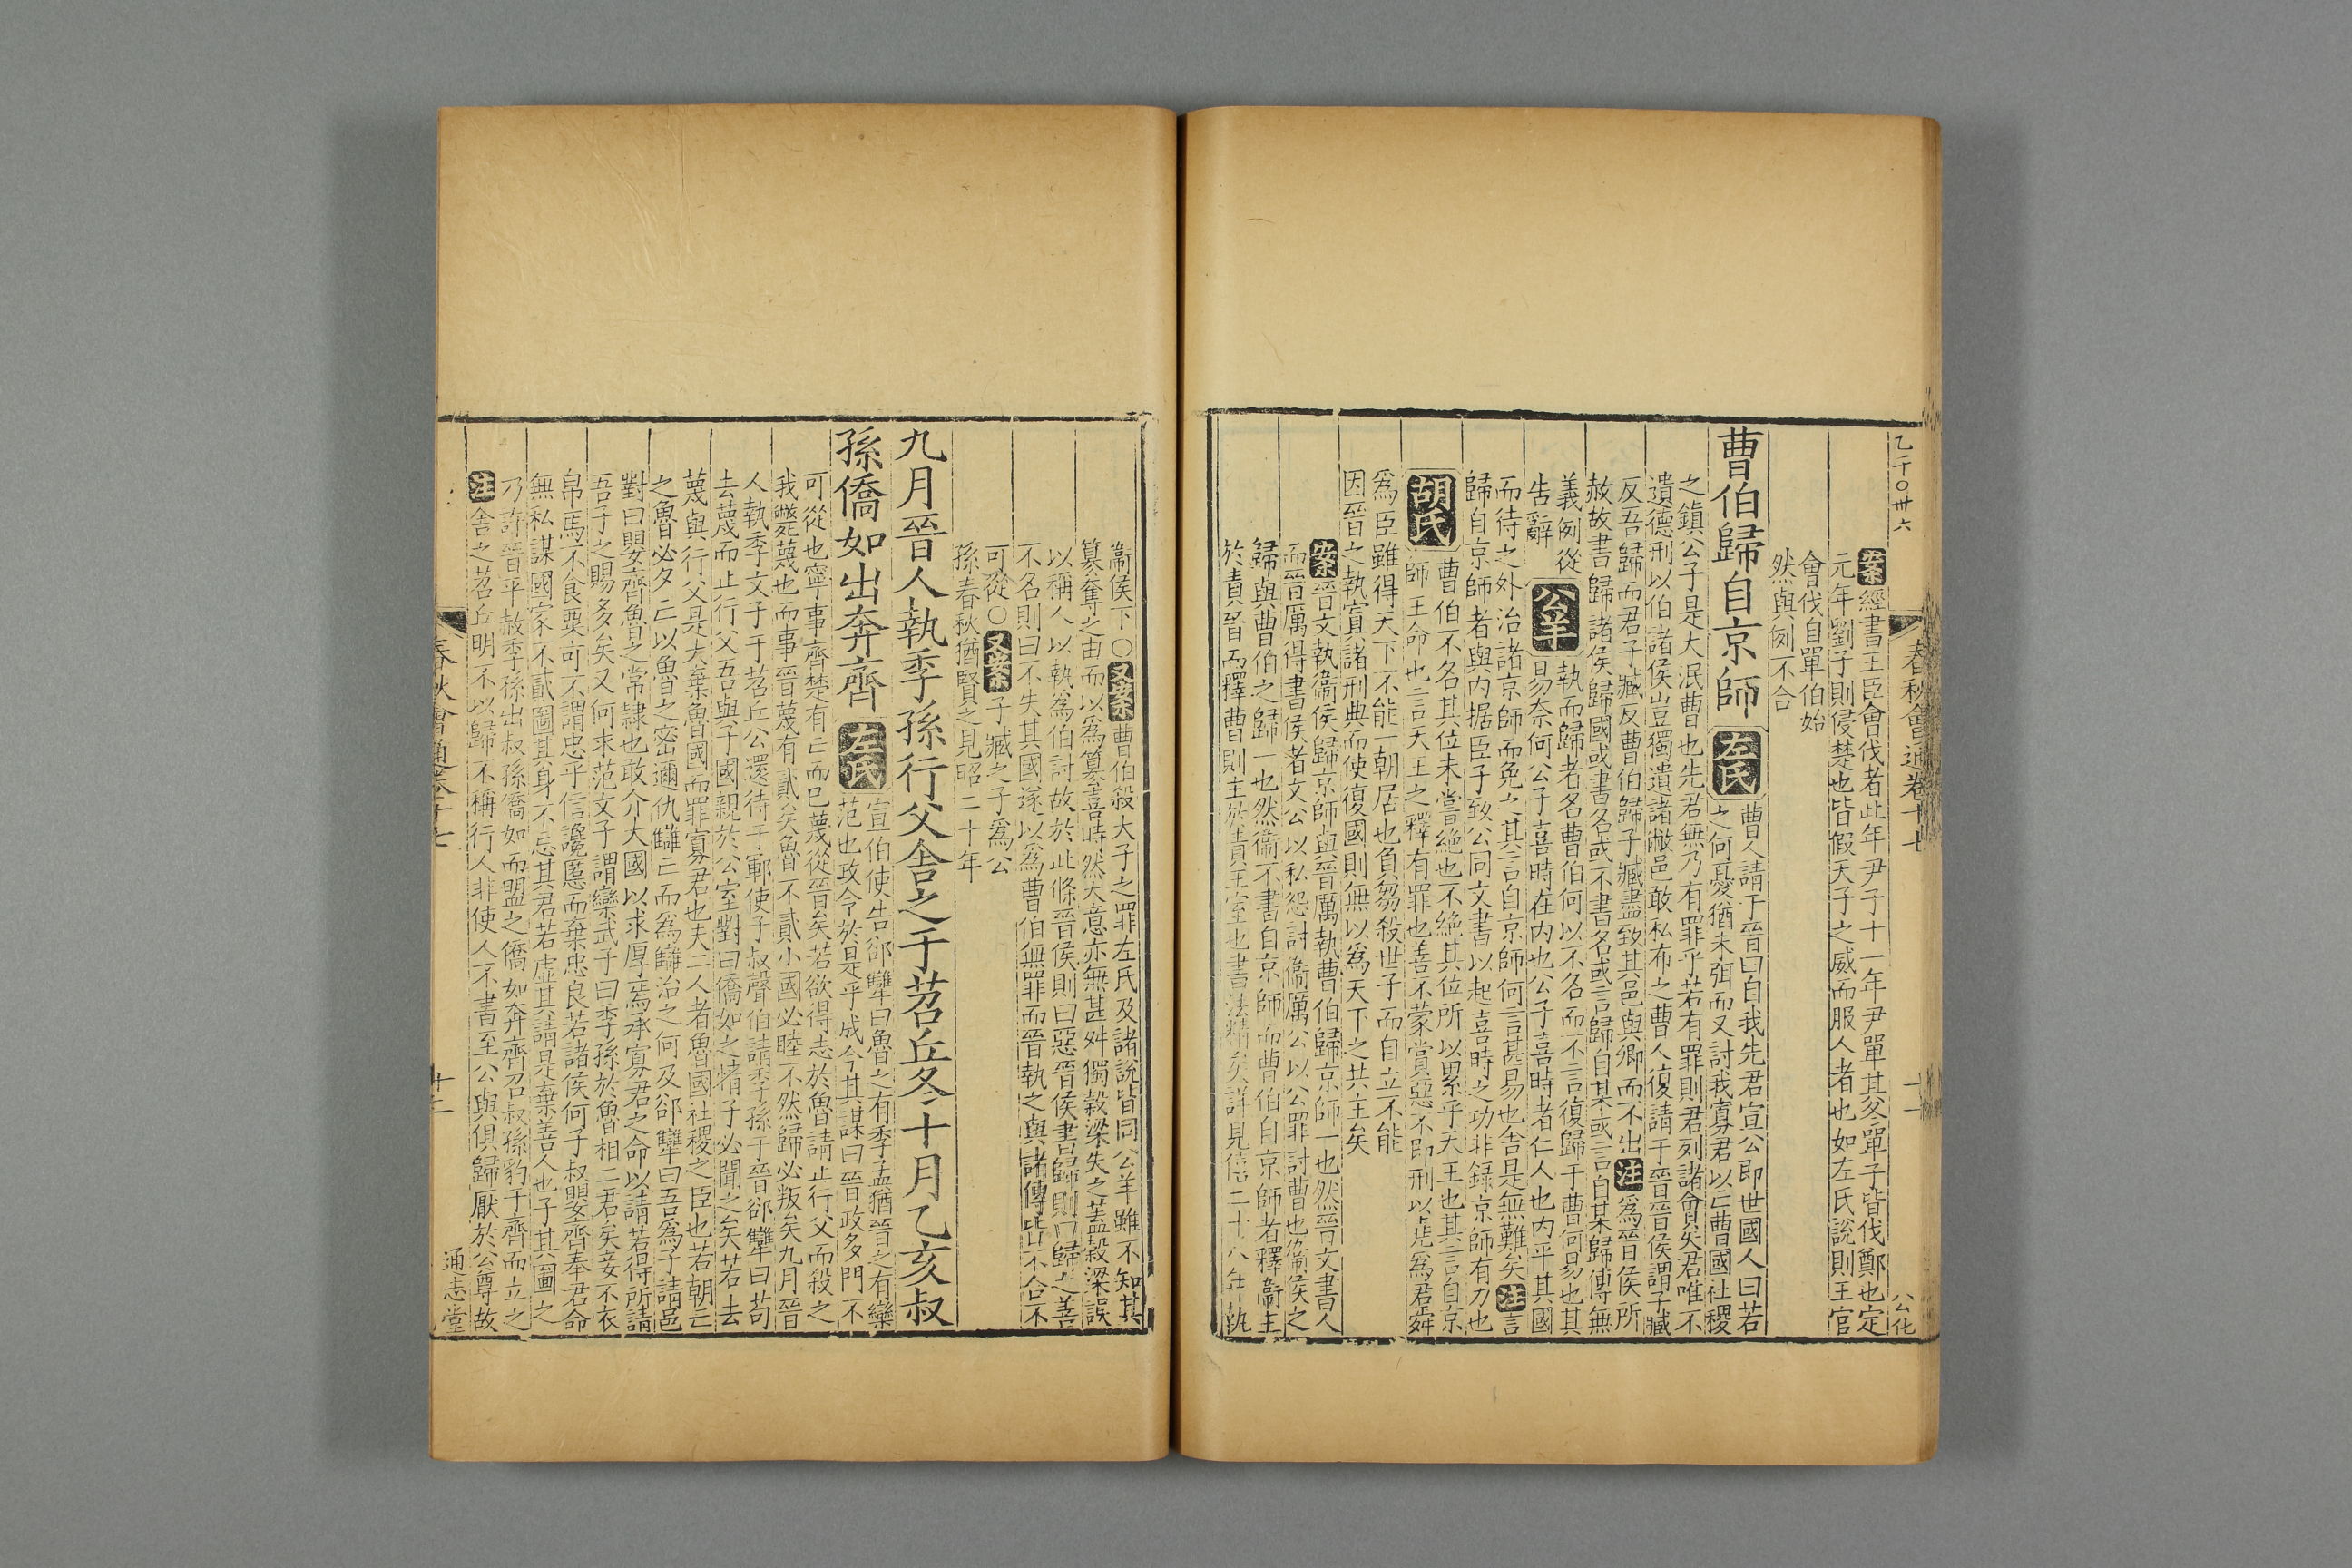 乙千〇卅六
春秋會通卷十七
十一
公化
案經書王臣會伐者此年尹子十一年尹單其冬單子皆伐鄭也定
元年劉子則侵楚也皆假天子之威而服人者也如左氏說則王官
會伐自單伯始
然與例不合
曹伯歸自京師 左氏 曹人請于晉曰自我先君宣公即世國人曰若
之何憂猶未弭而又討我寡君以亡曹國社稷
之鎮公子是大泯曹也先君無乃有罪乎若有罪則君列諸會矣君唯不
遺德刑以伯諸侯豈獨遺諸敝邑敢私布之曹人復請于晉晉侯謂子臧
反吾歸而君子臧反曹伯歸子臧盡致其邑與卿而不出注為晉侯所
赦故書歸諸侯歸國或書名或不書名或言歸自某或言自某歸傳無
義例從
告辭 公羊 執而歸者名曹伯何以不名而不言復歸于曹何易也其
易奈何公子喜時在内也公子喜時者仁人也内平其國
而待之外治諸京師而免之其言自京師何言甚易也舍是無難矣注言
歸自京師者與内据臣子致公同文書以起喜時之功非録京師有力也
胡氏 曹伯不名其位未嘗絶也不絶其位所以累乎天王也其言自京
師王命也言天王之釋有罪也善不蒙賞惡不即刑以堯為君舜
為臣雖得天下不能一朝居也負芻殺世子而自立不能
因晉之執寘諸刑典而使復國則無以為天下之共主矣
案晉文執衞侯歸京師與晉厲執曹伯歸京師一也然晉文書人
而晉厲得書侯者文公以私怨討衞厲公以公罪討曹也衞侯之
歸與曹伯之歸一也然衞不書自京師而曹伯自京師者釋衞主
於責晉而釋曹則主於責王室也書法精矣詳見僖二十八年執
衞侯下〇又案曹伯殺大子之罪左氏及諸說皆同公羊雖不知其
篡奪之由而以為篡喜時然大意亦無甚舛獨穀梁失之蓋穀梁誤
以稱人以執為伯討故於此條晉侯則曰惡晉侯書歸則曰歸之善
不名則曰不失其國遂以為曹伯無罪而晉執之與諸傳皆不合不
可從〇又案子臧之子為公
孫春秋猶賢之見昭二十年
九月晉人執季孫行父舍之于苕丘冬十月乙亥叔
孫僑如出奔齊 左氏 宣伯使告郤犨曰魯之有季孟猶晉之有欒
范也政令於是乎成今其謀曰晉政多門不
可從也寧事齊楚有亡而已蔑從晉矣若欲得志於魯請止行父而殺之
我斃蔑也而事晉蔑有貳矣魯不貳小國必睦不然歸必叛矣九月晉
人執季文子于苕丘公還待于鄆使子叔聲伯請季孫于晉郤犨曰苟
去蔑而止行父吾與子國親於公室對曰僑如之情子必聞之矣若去
蔑與行父是大棄魯國而罪寡君也夫二人者魯國社稷之臣也若朝亡
之魯必夕亡以魯之密邇仇讎亡而為讎治之何及郤犨曰吾為子請邑
對曰嬰齊魯之常隷也敢介大國以求厚焉承寡君之命以請若得所請
吾子之賜多矣又何求范文子謂欒武子曰季孫於魯相二君矣妾不衣
帛馬不食粟可不謂忠乎信讒慝而棄忠良若諸侯何子叔嬰齊奉君命
無私謀國家不貳圖其身不忘其君若虚其請是棄善人也子其圖之
乃許晉平赦季孫出叔孫僑如而盟之僑如奔齊召叔孫豹于齊而立之
注舍之苕丘明不以歸不稱行人非使人不書至公與俱歸厭於公尊故
春秋會通卷十七
十二
通志堂